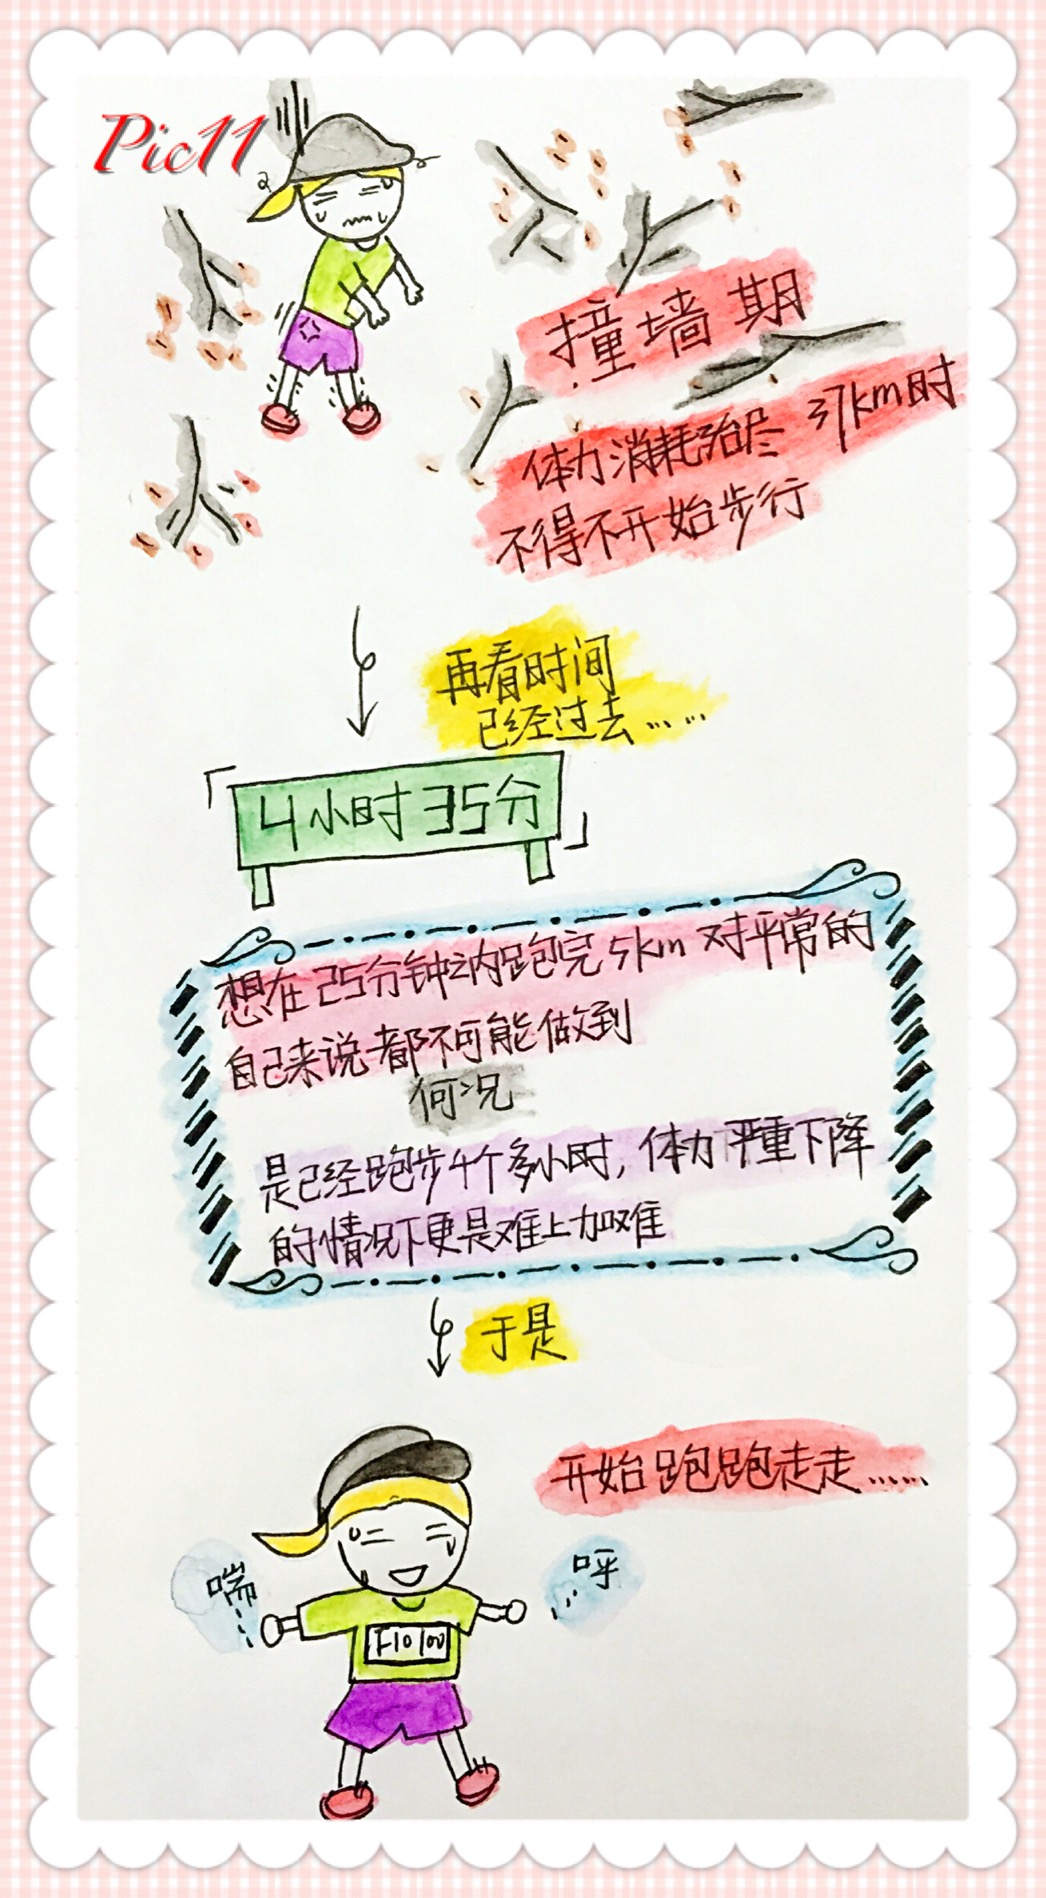 Pic11
撞墙期
体力消耗殆尽 37km时
不得不开始步行
再看时间
已经过去……
「4小时35分」
想在25分钟之内跑完5km 对平常的
自己来说都不可能做到
何况
是已经跑步4个多小时,体力严重下降
的情况下更是难上加难
于是
开始跑跑走走……
喘…
呼…
F10100